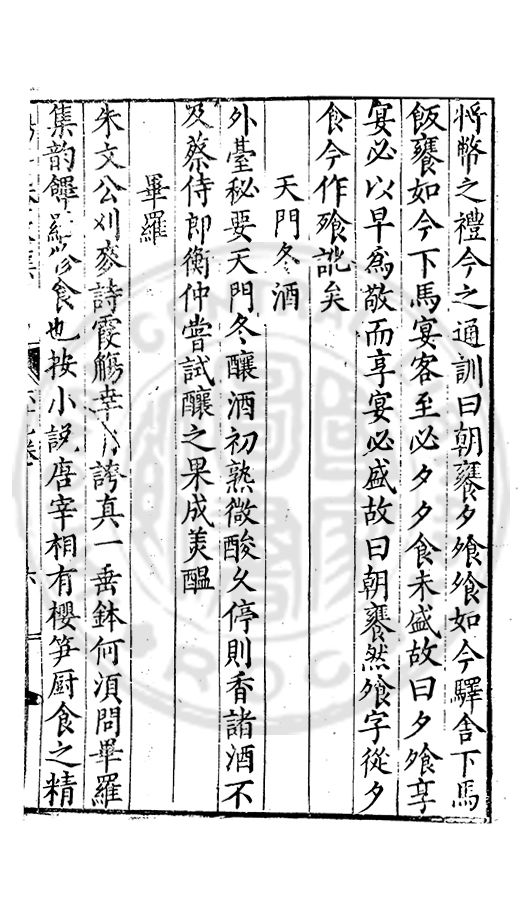 將幣之禮今之通訓曰朝饔夕飱飱如今驛舍下馬
飯饔如今下馬宴客至必夕夕食未盛故曰夕飱享
宴必以早爲敬而享宴必盛故曰朝饔然飱字從夕
食今作飱訛矣
天門冬酒
外臺秘要天門冬釀酒初熟微酸久停則香諸酒不
及蔡侍郎衡仲嘗試釀之果成美醞
畢羅
朱文公刈麥詩霞觴幸誇真一垂鉢何須問畢羅
集韵饆饠修食也按小說唐宰相有櫻笋厨食之精